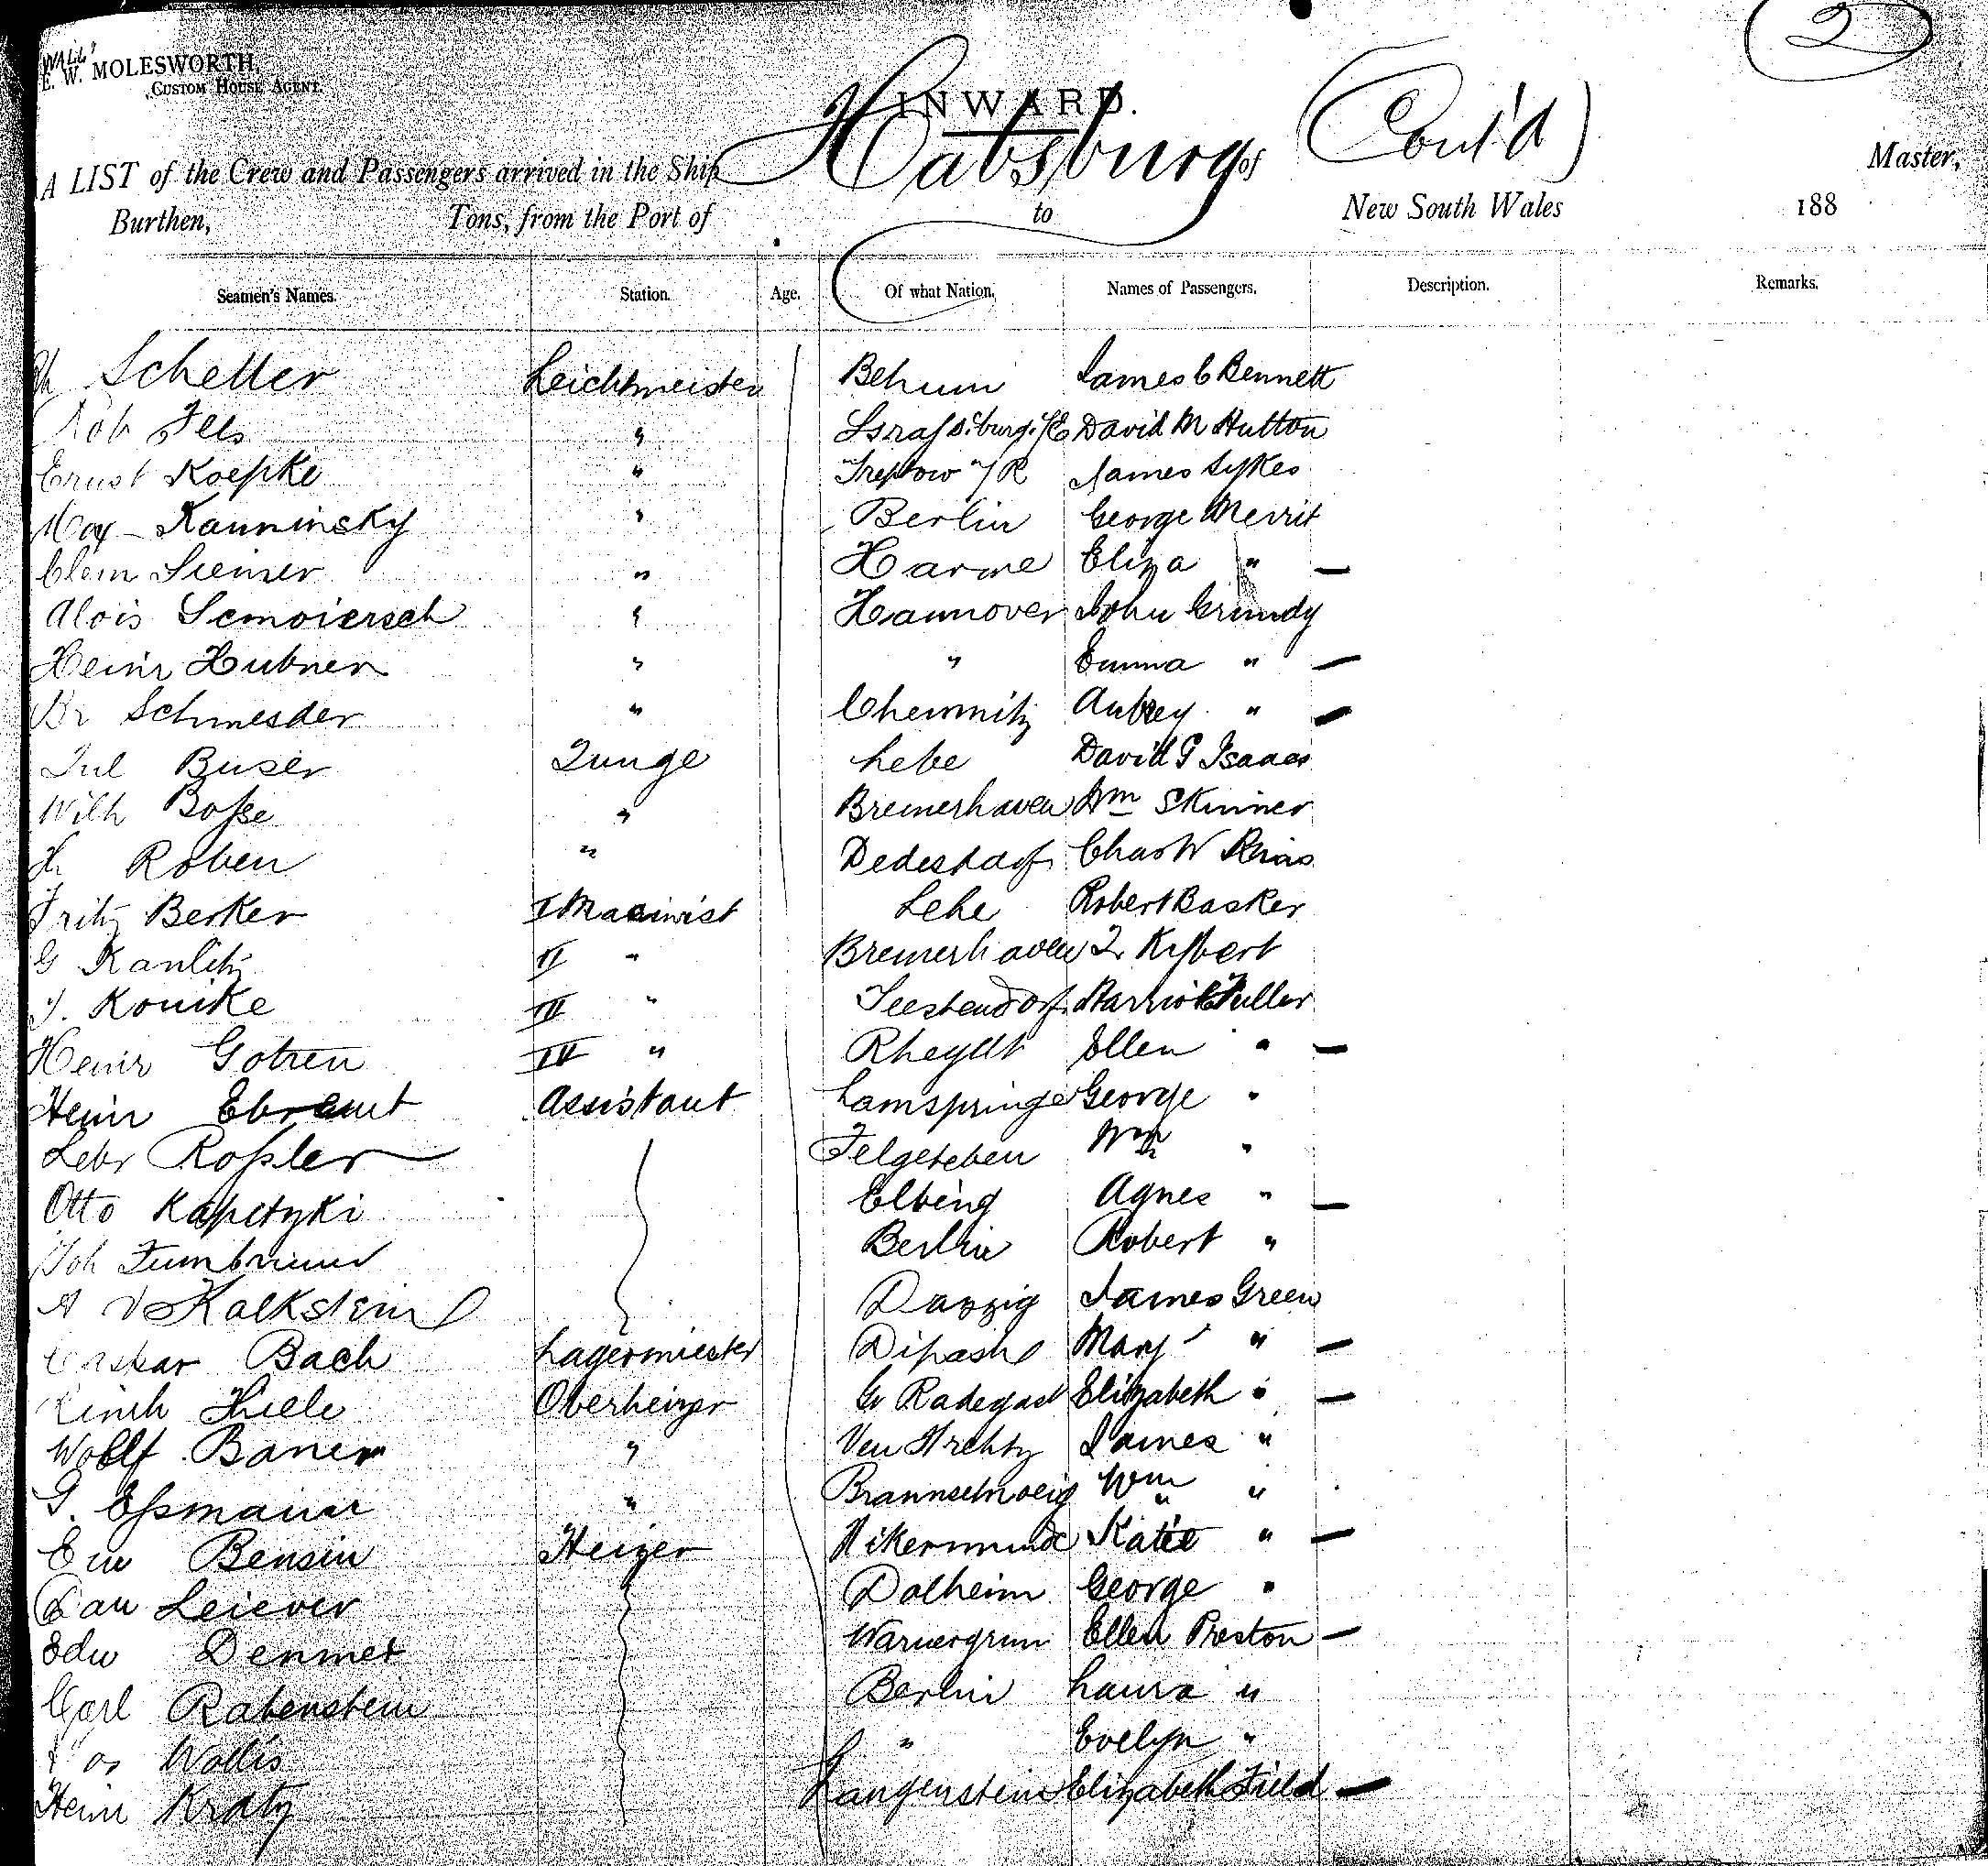 2
WALL &
E. W. MOLESWORTH,
CUSTOM HOUSE AGENT.
INWARD.
A LIST of the Crew and Passengers arrived in the Ship Habsburg of (Cont'd) Master,
Burthen, Tons, from the Port of to New South Wales 188
Seamen's Names. Station. Age. Of what Nation. Names of Passengers. Description. Remarks.
Scheller Leichtmeister Behum James C Bennett
Rob Fels " David M Hutton
Ernst Koepke " Treptow a/R James Sykes
Max Kauninsky " Berlin George Merrit
Clem " Harme Eliza " —
Alois " Hannover John Grundy
Heinr Hubner " " Emma " —
Br Schmesder " Chemnitz Aubrey " —
Jul Buser Junge Lehe David G Isaacs
Wilh Boße " Bremerhaven Wm Skinner
H Roben " Dedesdorf Chas W
Fritz Berker I Macinist Lehe Robert Basker
G Kanlitz II " Bremerhaven
J. Konike III " Harriot Fuller
Heinr Gotzen IV " Rheydt Ellen " —
Heinr Assistant Lamspringe George "
Lebr Roßler Felgeleben Wm "
Otto Kapetzki Elbing Agnes " —
Joh Berlin Robert "
A v Kalkstein Danzig James Green
Caspar Bach Lagermiester Mary " —
Hiele Oberheizer Gr Radegast Elizabeth " —
Baner " James "
G. Eßmann " Braunschweig Wm "
Em Bensin Heizer Katie " —
Leiever Dalheim George "
Edw Denmet Warnergrun Ellen Preston —
Carl Rabenstein Berlin Laura "
Wollis " Evelyn "
Heinr Kratz Langenstein Elizabeth Field —